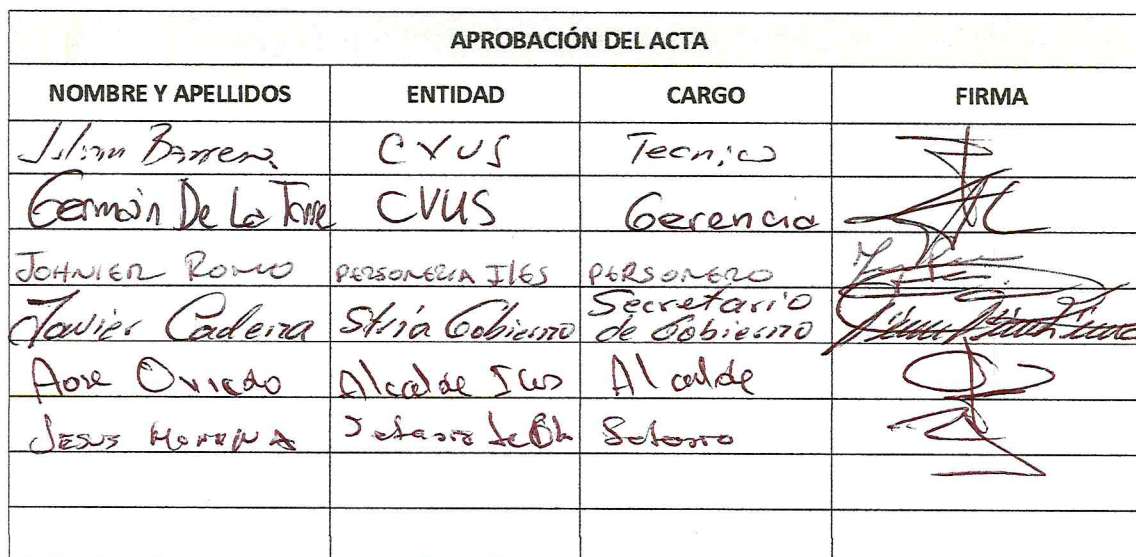 APROBACIÓN DEL ACTA
NOMBRE Y APELLIDOS ENTIDAD CARGO FIRMA
Julian Barrera CVUS Tecnico
Germain De La Torre CVUS Gerencia
JOHNIER ROMO PERSONERIA ILES PERSONERO
Javier Cadena Stria Gobierno Secretario de Gobierno
Oviedo Alcalde Iles Alcalde
JESUS